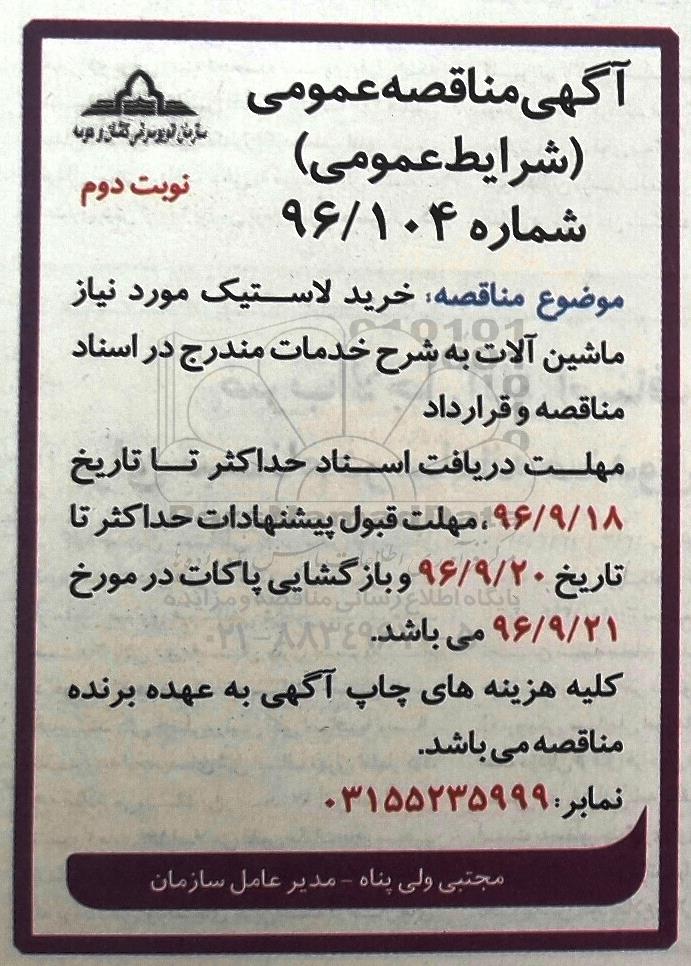 آگهی مناقصه عمومی
(شرایط عمومی)
شماره ۹۶/۱۰۴
نوبت دوم
موضوع مناقصه: خرید لاستیک مورد نیاز
ماشین آلات به شرح خدمات مندرج در اسناد
مناقصه و قرارداد
مهلت دریافت اسناد حداکثر تا تاریخ
۹۶/۹/۱۸، مهلت قبول پیشنهادات حداکثر تا
تاریخ ۹۶/۹/۲۰ و بازگشایی پاکات در مورخ
۹۶/۹/۲۱ می باشد.
کلیه هزینه های چاپ آگهی به عهده برنده
مناقصه می باشد.
نمابر: ۰۳۱۵۵۲۳۵۹۹۹
مجتبی ولی پناه - مدیر عامل سازمان
پایگاه اطلاع رسانی مناقصه و مزایده